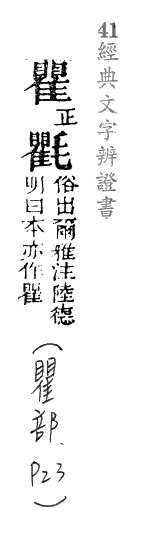 41經典文字辨證書
瞿正
氍俗出爾雅注陸德
明曰本亦作瞿
(瞿部、P23)